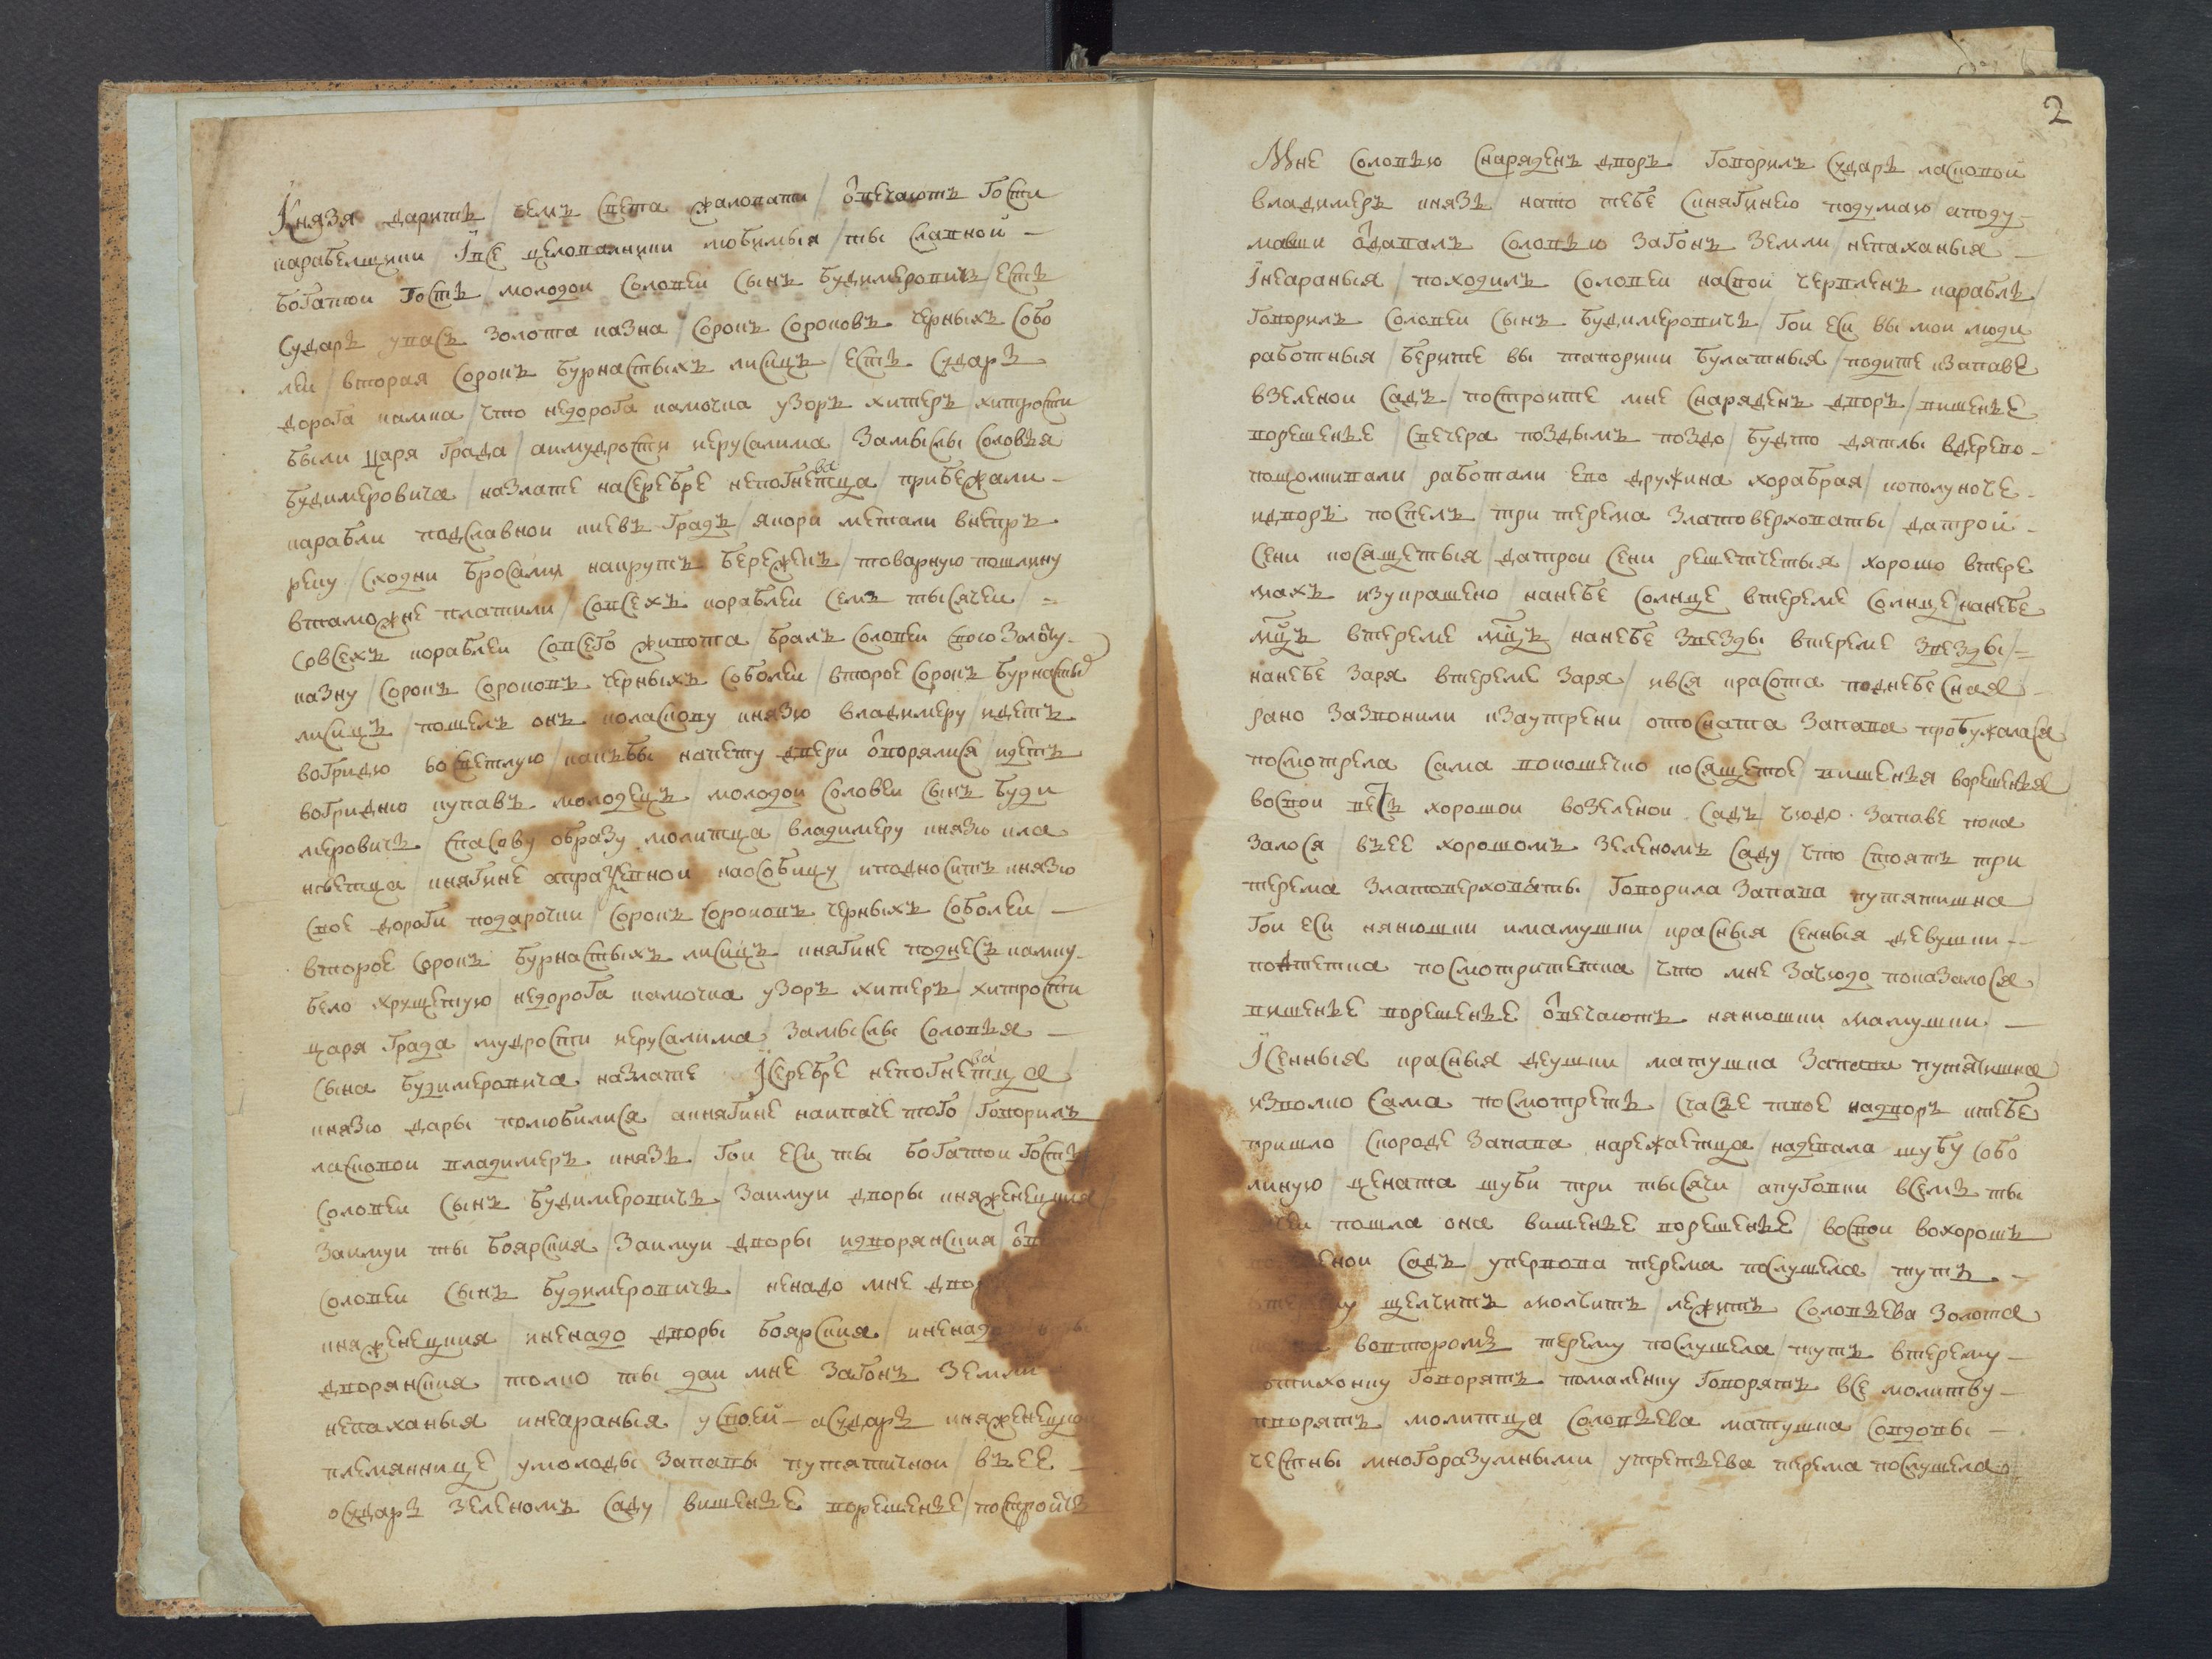 Князя даритъ / чемъ света жаловати / отвечаютъ гости
карабелщики / Iвсе целовалники любимыя / ты славнои
богатои гость / молодои Соловеи сынъ Будимеровичь / есть
сударь унасъ золота казна / сорокъ сороковъ черныхъ собо
леи / вторая сорокъ бурнастыхъ лисицъ / есть сударь
дорога камка / что недорога камочка узоръ хитеръ / хитрости
были царя града / аимудрости иерусалима / замыслы Соловья
будимеровича / назлате насеребре непогнетца / прибежали
карабли подславнои киевъ градъ / якори метали внепръ
реку / сходни бросали накрутъ бережекъ / товарную пошлину
втаможне платили / совсехъ кораблеи семъ тысячеи / =
совсехъ кораблеи совсего живота / бралъ Соловеи свою золоту
казну / сорокъ сороковъ черныхъ соболеи / второе сорокъ бурнасты
лисицъ / пошелъ онъ коласкову князю владимеру / идетъ
вогридю восветлую / какъбы напету двери отворялися / идетъ
вогридню купавъ молодецъ / молодои Соловеи сынъ Буди
меровичь / Спасову образу молитца / владимеру князю кла
нѣетца / княгине апраксевнои наособицу / иподноситъ князю
свое дороги подарочки / сорокъ сороковъ черныхъ соболеи / —
второе сорокъ бурнастыхъ лисицъ / княгине поднесъ камку
бело хрущетую / недорога камочка узоръ хитеръ / хитрости
царя града / мудрости иерусалима / замыслы Соловья —
сына будимеровича / назлате Iсеребре непогнетца
князю дары полюбилися / акнягине наипаче того / говорилъ
ласковои владимеръ князь / гои еси ты богатои гость
Соловеи сынъ Будимеровичь / заимуи дворы княженецкия
заимуи ты боярския / заимуи дворы идворянския /
Соловеи сынъ Будимеровичь / ненадо мне
княженецкия / иненадо дворы боярския / иненадо
дворянския / толко ты даи мне загонъ земли
непаханыя инеараныя / усвоеи — асударь княженецкои
племяннице / умолоды запавы путятичнои / въ ее —
осударь зеленомъ саду / вишенье ворешенье / построить
2
Мне Соловью снаряденъ дворъ / говорилъ сударь ласковои
владимеръ князь / нато тебе скнягинею подумаю / аподу
мавши одавалъ Соловью загонъ земли / непаханыя —
Iнеараныя / походилъ Соловеи насвои черпленъ карабль /
говорилъ Соловеи сынъ Будимеровичь / гои еси вы мои люди
работныя / берите вы тапорики булатныя / подите кзапаве
взеленои садъ / построите мне снаряденъ дворъ / вишенье
ворешенье / свечера поздымъ поздо / будто дятлы вдерево
пощолкивали / работали ево дружина хорабрая / кополуноче
идворъ поспелъ / три терема златоверховаты / датрои
сени косящетыя / датрои сени решетчетыя / хорошо втере
махъ изукрашено / нанебе солнце втереме солнце / нанебе
мцъ втереме мцъ / нанебе звезды втереме звезды / =
нанебе заря втереме заря / ився красота поднебесная
рано зазвонили кзаутрени / отосната запава пробужалася
посмотрела сама вокошечко косящетое / вишенья ворешенья
восвои весь хорошои возеленои садъ / чюдо запаве пока
залося / въее хорошомъ зеленомъ саду / что стоятъ три
терема златоверховаты / говорила запава путятишна
гои еси нянюшки имамушки / красныя сенныя девушки —
подтетка посмотритетка / что мне зачюдо показалося
вишенье ворешенье / отвечаютъ нянюшки мамушки / —
Iсенныя красныя деушки / матушка запава путятишна
изволко сама посмотреть / счасье твое надворъ ктебе
пришло / скороде запава нарежаетца / надевала шубу собо
линую / цената шуби три тысячи / апуговки всемъ ты
пошла она вишенье ворешенье / восвои вохорошъ
садъ / упервова терема послушела / тутъ
щелчитъ молчитъ / лежитъ Соловьева золота
вовторомъ терему послушела / тутъ втерему —
потихонку говорятъ помаленку говорятъ все молитву —
творятъ / молитца Соловьева матушка / совдовы —
честны многоразумными / утретьева терема послушела